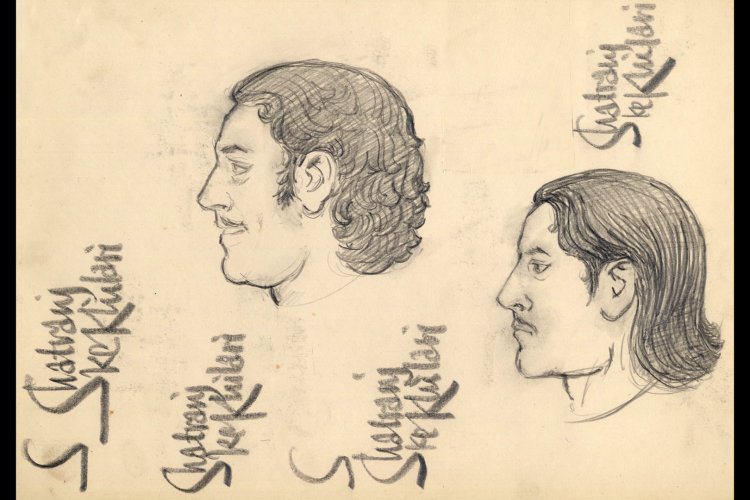 Shatranj
ke Khilari
Shatranj
ke Khilari
S
Shatranj
ke Khilari
Shatranj
ke Khilari
S
Shatranj
ke Khilari